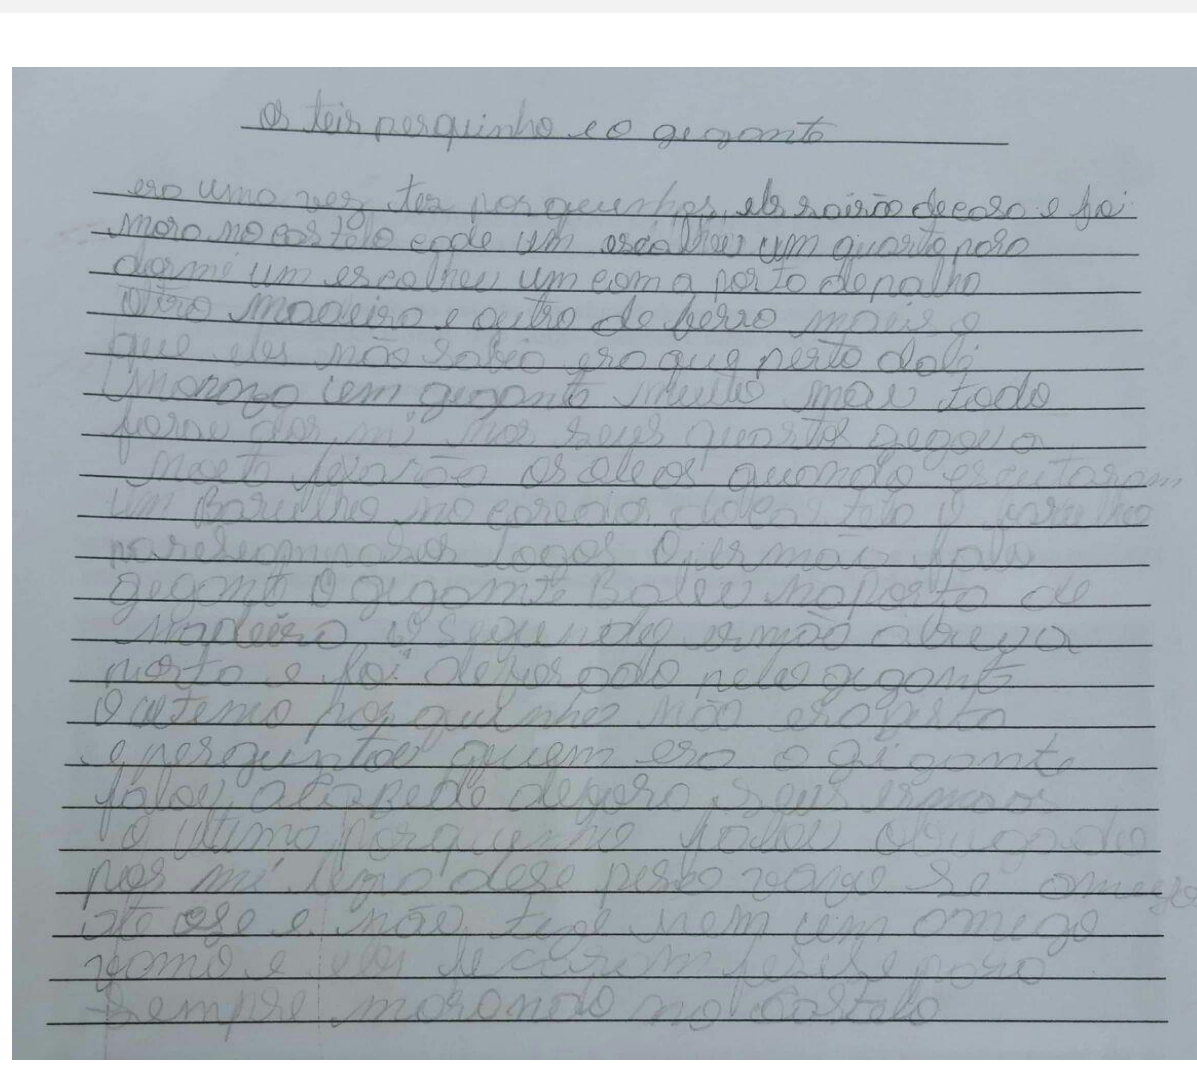 Os teis porquinho e o gegante
era uma vez tes porquinhos eles sairão de casa e foi
mora no castelo cade um escolheu um quarto para
dormi um escolheu um com a porta de palha
otro madeira e outro de ferro mais o
que eles não sabia era que perto dali
morava um gegante muito mau todo
foram dormi nos seus quartos gegou a
noete os quando escutaram
um Barulho no coredor do castelo
logos O ermão falo
gegante O gigante Bateu na porta de
madeira o segundo ermão abreu a
porta e foi devorado pelo gegante
O utemo porquinho não era
e perguntou quem era o gigante
falou acabede devora seus ermaos
o ultimo porquinho falou obrigado
por mi livra dese peso vamos se amigo
até oge e não tive nem um amigo
vamo e eles para
sempre morando no castelo